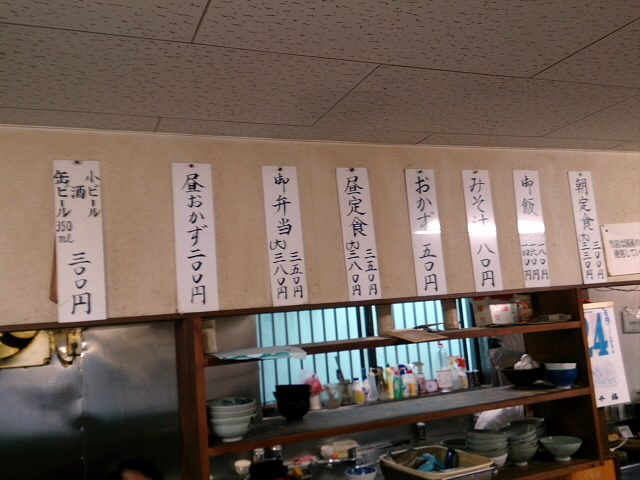 朝定食
三〇〇円
(大)三三〇円
御飯
一八〇円
みそ汁 八〇円
おかず 五〇円
昼定食
三五〇円
(大)三八〇円
御弁当
三五〇円
(大)三八〇円
昼おかず 二〇〇円
小ビール
酒
缶ビール 350ml
三〇〇円
4